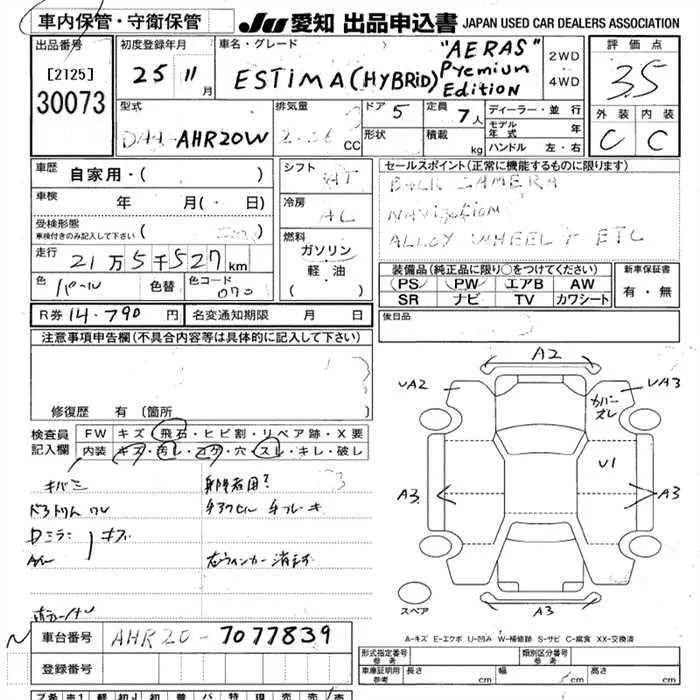 車内保管・守衛保管
JU 愛知 出品申込書 JAPAN USED CAR DEALERS ASSOCIATION
出品番号
[2125]
30073
初度登録年月
25 11月
車名・グレード
ESTIMA (HYBRID) "AERAS" Pyemium Edition
2WD
4WD
評価点
3.5
外装 内装
C C
型式
DAA-AHR20W
排気量
CC
ドア 5
形状
定員 7人
積載 kg
ディーラー・並行
モデル年式 年
ハンドル 左・右
車歴
自家用・( )
車検
年 月(・ 日)
受検形態
車検付きのみ記入して下さい ( )
走行
21万5千527km
色 パール 色替 色コード 070
シフト
AT
冷房
AC
燃料
ガソリン
・
軽・油
( )
セールスポイント(正常に機能するものに限ります)
BACK CAMERA
NAVigation
ALLOY WHEEL ETC
装備品(純正品に限り○をつけてください)
PS PW エアB AW
SR ナビ TV カワシート
新車保証書
有・無
R券 14-790 円 名変通知期限 月 日
後日品
注意事項申告欄(不具合内容等は具体的に記入して下さい)
修復歴 有 (箇所 )
検査員記入欄
FW キズ・飛石・ヒビ割・リペア跡・X要
内装 キズ・汚し・コゲ・穴・スレ・キレ・破し
キバミ
手アクセル 手ブレーキ
右ウィンカー
A2
UA2
UA3
カバーズレ
U1
A3
A3
A3
スペア
A-キズ E-エクボ U-凹み W-補修跡 S-サビ C-腐食 XX-交換済
車台番号 AHR20-7077839
登録番号
形式指定番号
参考
類別区分番号
参考
車庫証明用
参考
長さ cm
幅 cm
高さ cm